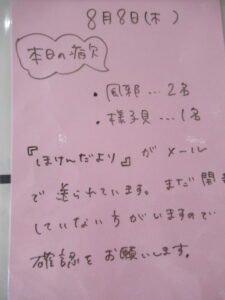 8月8日(木)
本日の病欠
・風邪…2名
・様子見…1名
『ほけんだより』がメール
で送られています。まだ開
していない方がいますので
確認をお願いします。